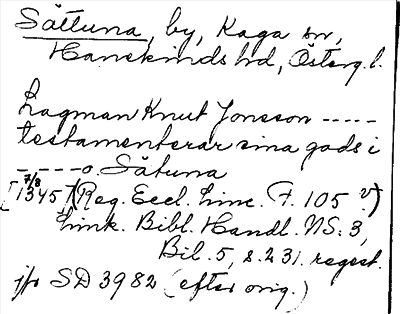 Sättuna, by, Kaga sn,
Hanekinds hd, Österg. l.
Lagman Knut Jonsson -----
testamenterar sina gods i
-----o Sätuna
[7/8 1345] (Reg. Eccl. Linc. F. 105 v)
Link. Bibl. Handl. NS. 3,
Bil. 5, s. 231. regest.
jfr SD 3982 (efter orig.)